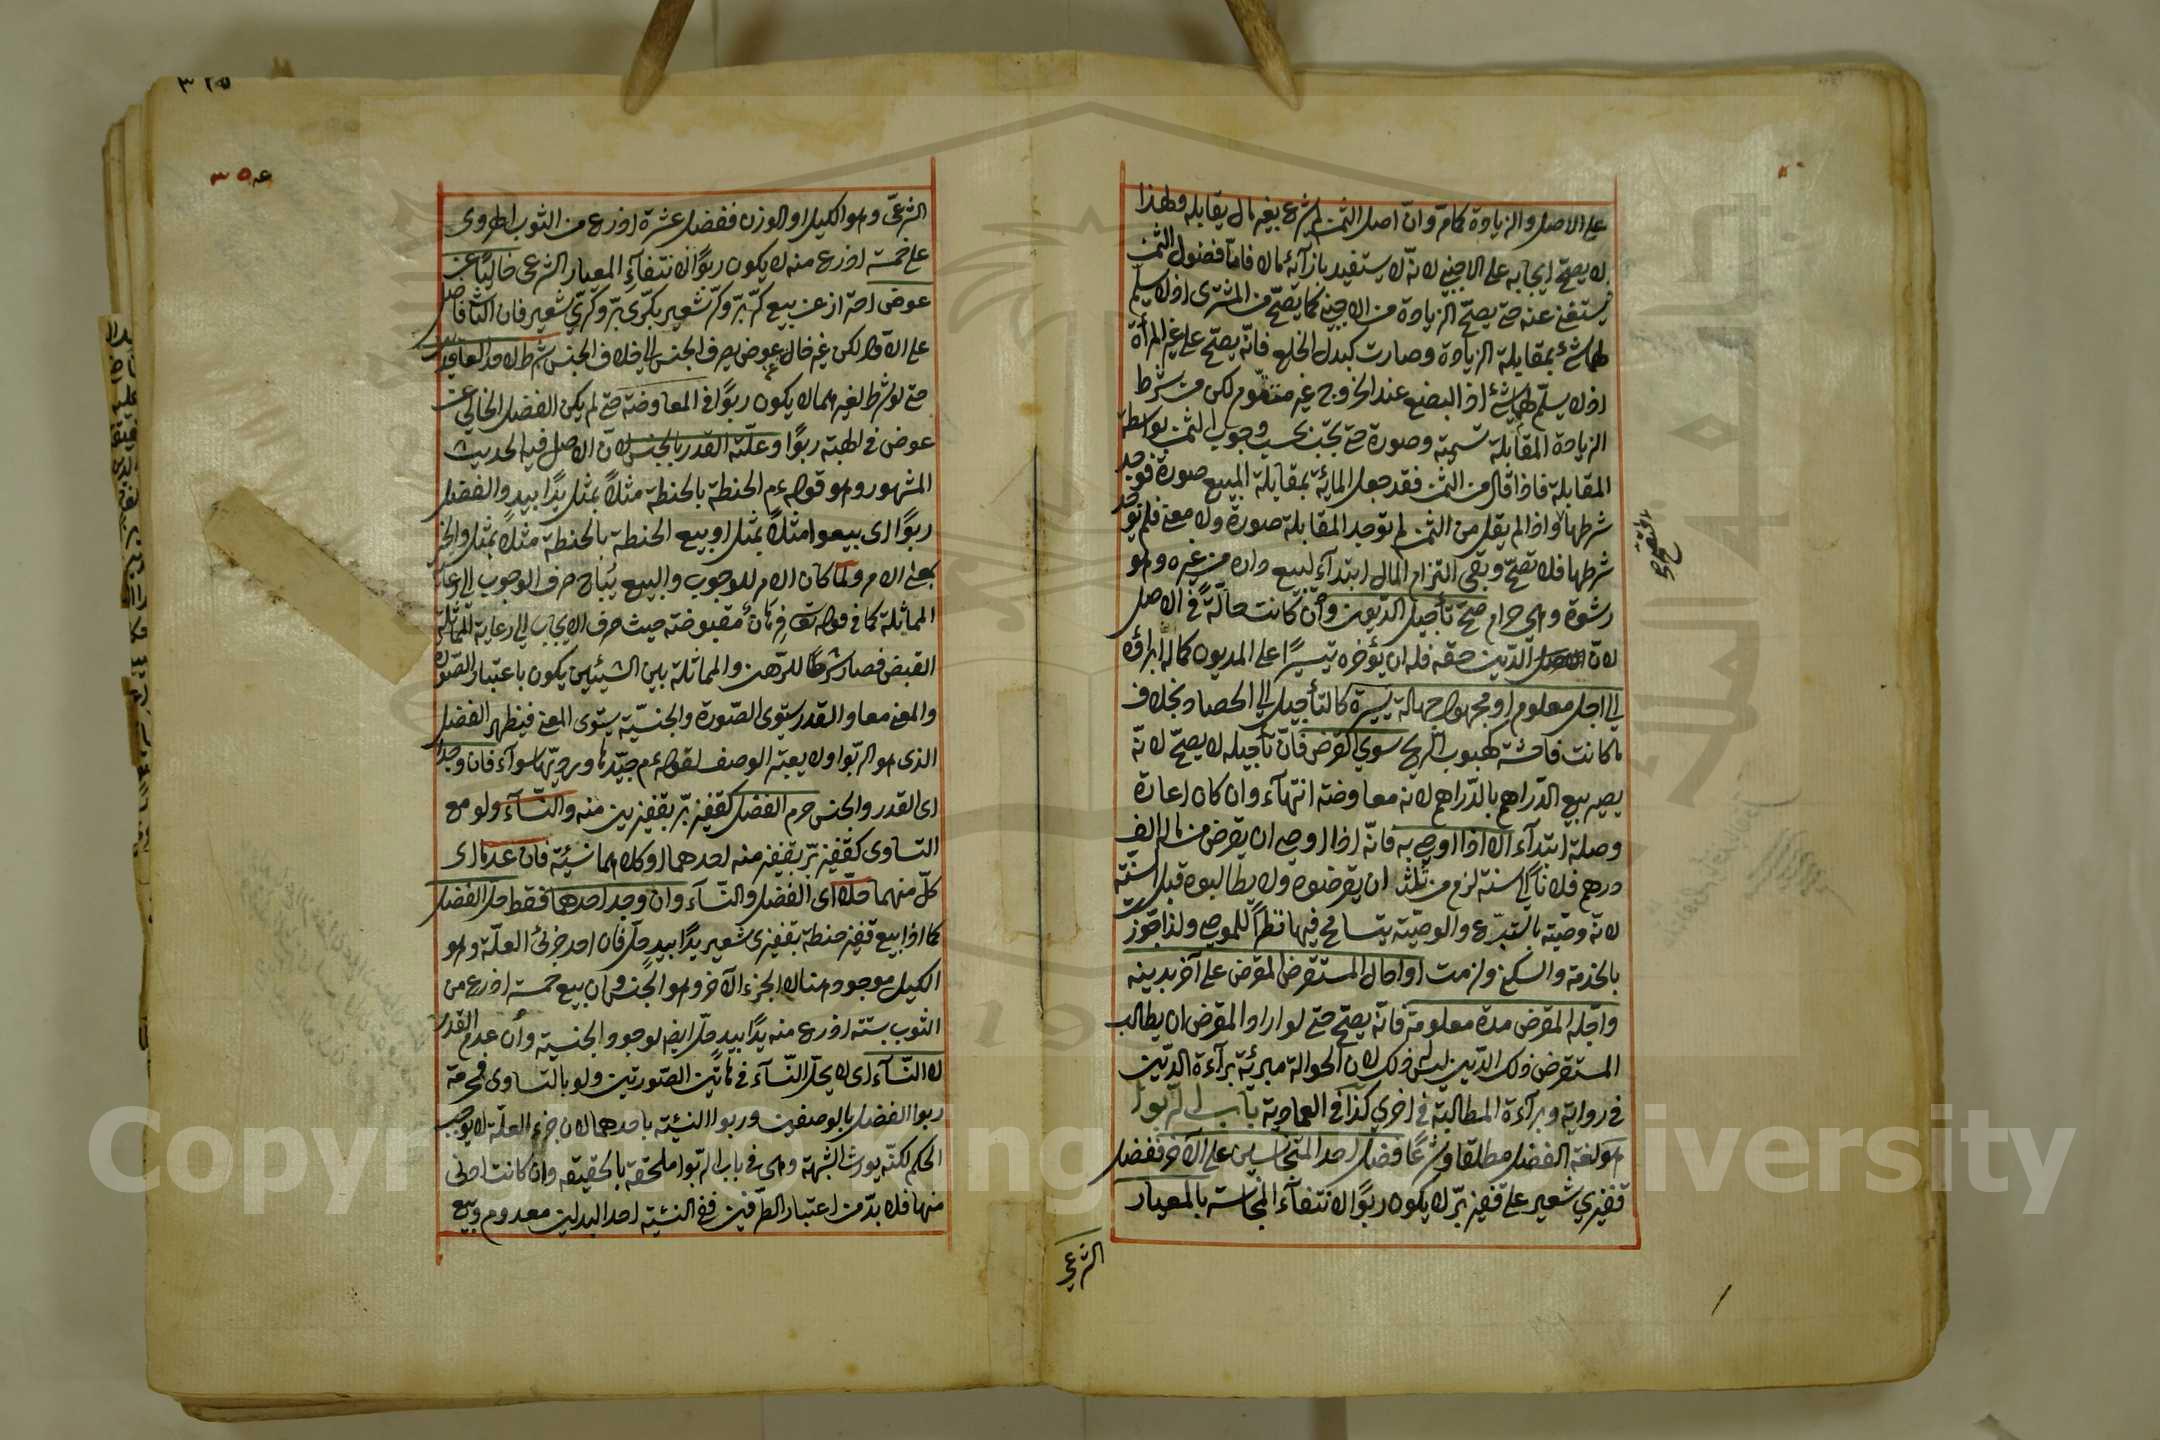 على الاصل والزيادة كما مر وان اصل الثمن لم يشرع بغير مال يقابله ولهذا
لا يصح ايجابه على الاجنبي لانه لا يستفيد بازائه مالا فاما فضول الثمن
فيستغنى عنه حتى يصح الزيادة من الاجنبى كما يصح من المشترى اذ لا يسلم
لهما شئ بمقابلة الزيادة وصارت كبدل الخلع فانه يصح على غير المرأة
اذ لا يسلم لهما شئ اذ البضع عند الخروج غير متقوم لكن من شرط
الزيادة المقابلة تسمية وصورة حتى يجب بحسب وجوب الثمن بواسطة
المقابلة فاذا قال من الثمن فقد جعل المائة بمقابلة المبيع صورة فوجد
شرطها واذا لم يقل من الثمن لم توجد المقابلة صورة ولا معنى فلم توجد
شرطها فلا تصح وبقى التزام المال ابتداء لبيع داره من غيره وهو
رشوة وهى حرام صح تأجيل الديون وان كانت حالة فى الاصل
لان الدين حقه فله ان يؤخره تيسيرا على المديون كما له ابراؤه
الى اجل معلوم او مجهول جهالة يسيرة كالتأجيل الى الحصاد بخلاف
ما كانت فاحشة كهبوب الريح سوى القرض فان تأجيله لا يصح لانه
يصير بيع الدراهم بالدراهم لانه معاوضة انتهاء وان كان اعارة
وصلة ابتداء الا اذا اوصى به فانه اذا اوصى ان يقرض من ماله الف
درهم فلانا الى سنة لزم من ثلثه ان يقرضوه ولا يطالبوه قبل السنة
لانه وصية بالتبرع والوصية يتسامح فيها نظرا للموصى ولذا جوز
بالخدمة والسكنى ولزمت او احال المستقرض المقرض على آخر بدينه
واجله المقرض مدة معلومة فانه يصح حتى لو اراد المقرض ان يطالب
المستقرض ذلك الدين ليس له ذلك لان الحوالة مبرئة براءة الدين
فى رواية وبراءة المطالبة فى اخرى كذا فى العمادية باب الربوا
هو لغة الفضل مطلقا وشرعا فضل احد المتجانسين على الآخر ففضل
قفيزى شعير على قفيز بر لا يكون ربوا لانتفاء المجانسة بالمعيار
الشرعى
٣٥٤
الشرعى وهو الكيل او الوزن ففضل عشرة اذرع من الثوب الهروى
على خمسة اذرع منه لا يكون ربوا لانتفاء المعيار الشرعى خاليا عن
عوض احتراز عن بيع كر بر وكر شعير بكرى بر وكرى شعير فان الثانى فاضل
على الاول لكن غير خال عن عوض بصرف الجنس الى خلاف الجنس شرط لاحد العاقدين
حتى لو شرط لغيرهما لا يكون ربوا فى المعاوضة حتى لم يكن الفضل الخالى عن
عوض فى الهبة ربوا وعلته القدر بالجنس لان الاصل فيه الحديث
المشهور وهو قوله عم الحنطة بالحنطة مثلا بمثل يدا بيد والفضل
ربوا اى بيعوا مثلا بمثل او بيع الحنطة بالحنطة مثلا بمثل والخبر
بمعنى الامر ولما كان الامر للوجوب والبيع يباح صرف الوجوب الى رعاية
المماثلة كما فى قوله تع فرهان مقبوضة حيث صرف الايجاب الى رعاية المماثلة
القبض فصار شرطا للرهن والمماثلة بين الشيئين يكون باعتبار الصورة
والمعنى معا والقدر يستوى الصورة والجنسية يستوى المعنى فيظهر الفضل
الذى هو الربوا ولا يعتبر الوصف لقوله عم جيدها ورديها سواء فان وجدا
اى القدر والجنس حرم الفضل كقفيز بر بقفيزين منه والنساء ولو مع
التساوى كقفيز بر بقفيز منه احدهما او كلاهما نسيئة فان عدما اى
كل منهما حلا اى الفضل والنساء وان وجد احدهما فقط حل الفضل
كما اذا بيع قفيز حنطة بقفيزى شعير يدا بيد حل فان احد جزئى العلة وهو
الكيل موجود هنا لا الجزء الآخر وهو الجنس وان بيع خمسة اذرع من
الثوب بستة اذرع منه يدا بيد حل ايضا لوجود الجنسية وان عدم القدر
لا النساء اى لا يحل النساء فى هاتين الصورتين ولو بالتساوى فحرمة
ربوا الفضل بالوصفين وربوا النسيئة باحدهما لان جزء العلة لا يوجب
الحكم لكنه يورث الشبهة وهى فى باب الربوا ملحقة بالحقيقة وان كانت ادنى
منها فلا بد من اعتبار الطرفين ففى النسيئة احد البدلين معدوم وبيع
Copyright © King Saud University